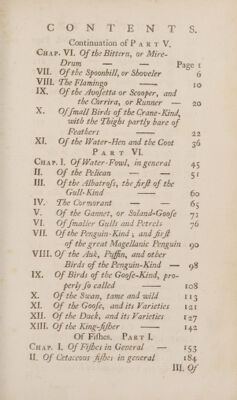 CONTENTS.
Continuation of PART V.
CHAP. VI. Of the Bittern, or Mire-
Drum — — Page 1
VII. Of the Spoonbill, or Shoveler 6
VIII. The Flamingo —— 10
IX. Of the Avosetta or Scooper, and
the Corrira, or Runner — 20
X. Of small Birds of the Crane-Kind,
with the Thighs partly bare of
Feathers —— 22
XI. Of the Water-Hen and the Coot 36
PART VI.
CHAP. I. Of Water-Fowl, in general 45
II. Of the Pelican — — 51
III. Of the Albatross, the first of the
Gull-Kind —— 60
IV. The Cormorant — — 65
V. Of the Gannet, or Soland-Goose 71
VI. Of smaller Gulls and Petrels 76
VII. Of the Penguin-Kind; and first
of the great Magellanic Penguin 90
VIII. Of the Auk, Puffin, and other
Birds of the Penguin-Kind — 98
IX. Of Birds of the Goose-Kind, pro-
perly so called —— 108
X. Of the Swan, tame and wild 113
XI. Of the Goose, and its Varieties 121
XII. Of the Duck, and its Varieties 127
XIII. Of the King-fisher —— 142
Of Fishes. PART I.
CHAP. I. Of Fishes in General — 153
II. Of Cetaceous fishes in general 184
III. Of